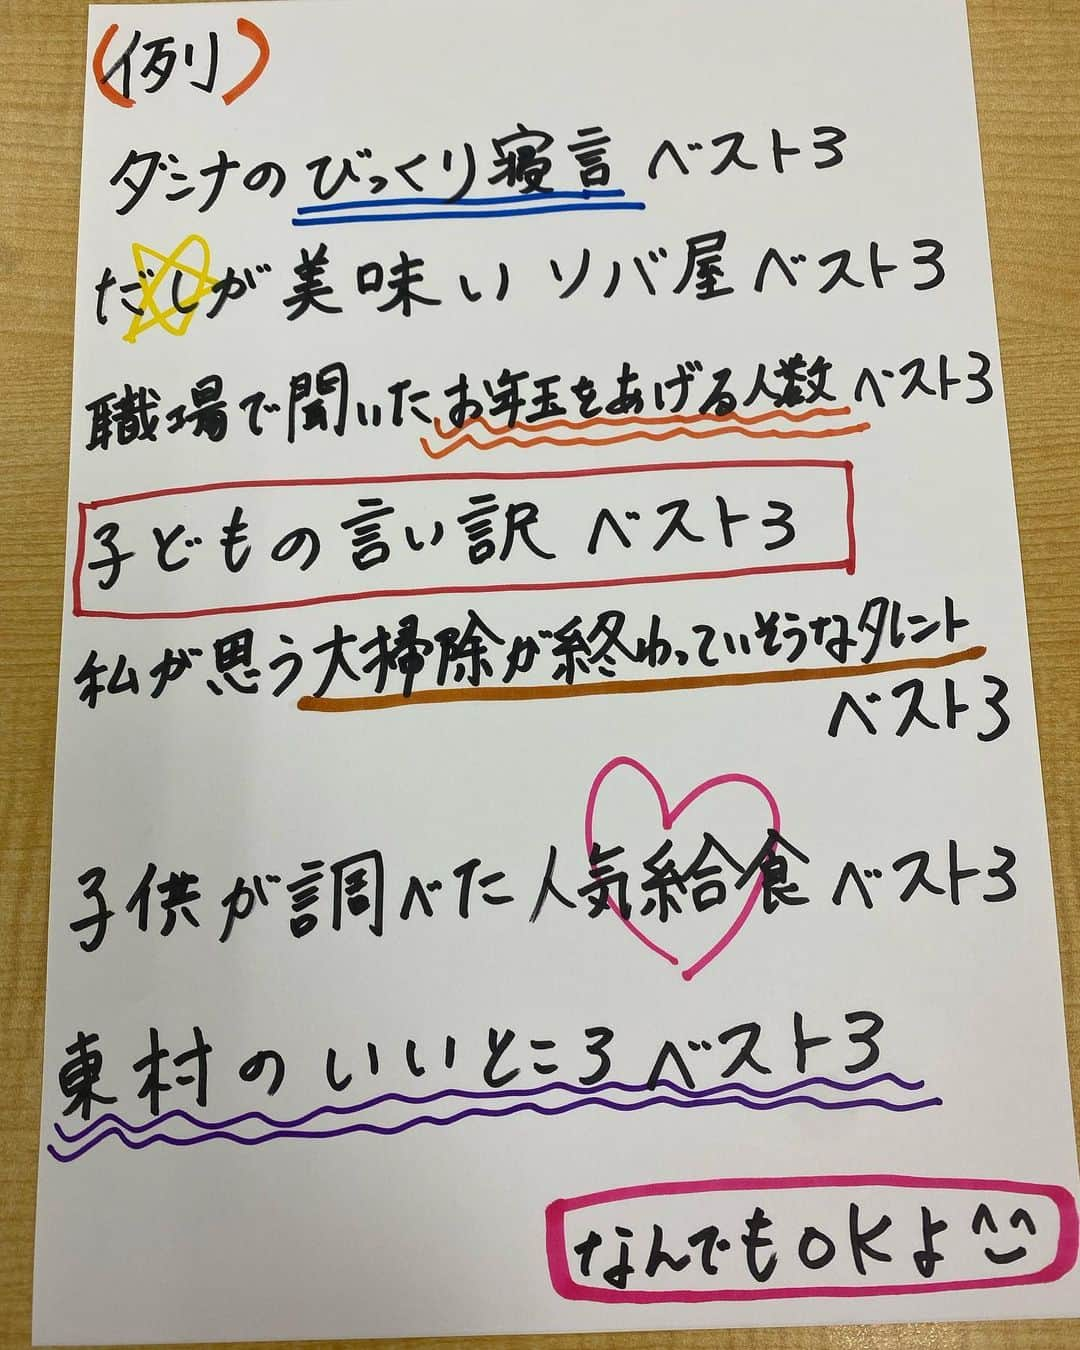 (例)
ダンナのびっくり寝言 ベスト3
だしが美味いソバ屋ベスト3
職場で聞いたお年玉をあげる人数 ベスト3
子どもの言い訳 ベスト3
私が思う大掃除が終わっていそうなタレント
ベスト3
子供が調べた人気給食ベスト3
東村のいいところベスト3
なんでもOKよ^^